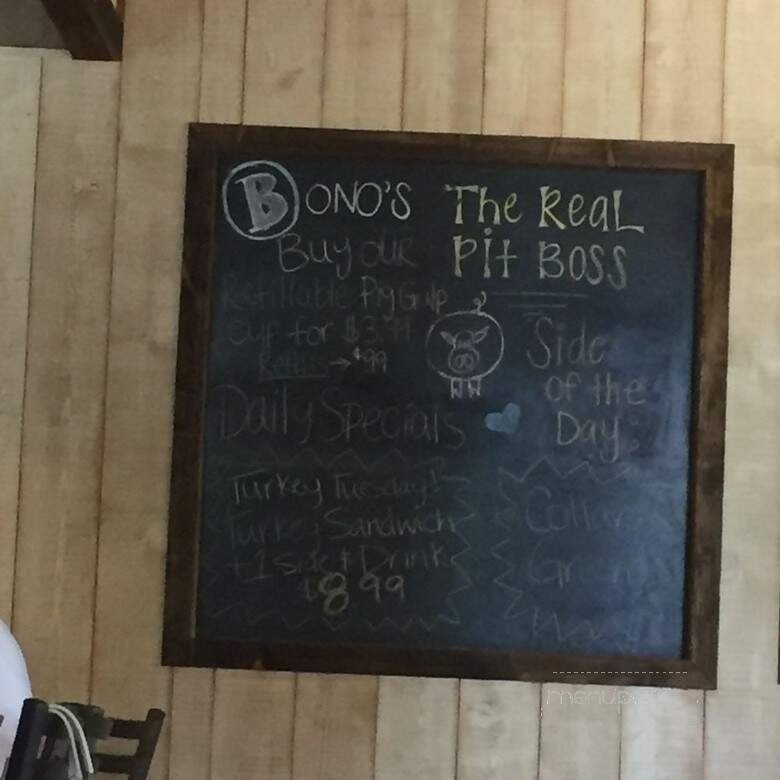 BONO'S
The Real
Pit Boss
Buy our
Refillable Pig Gulp
Cup for $3.99
Refills → $.99
Daily Specials
Turkey Tuesday!
Turkey Sandwich
+ 1 side + Drink
$8.99
Side
of the
Day:
Collard
Greens